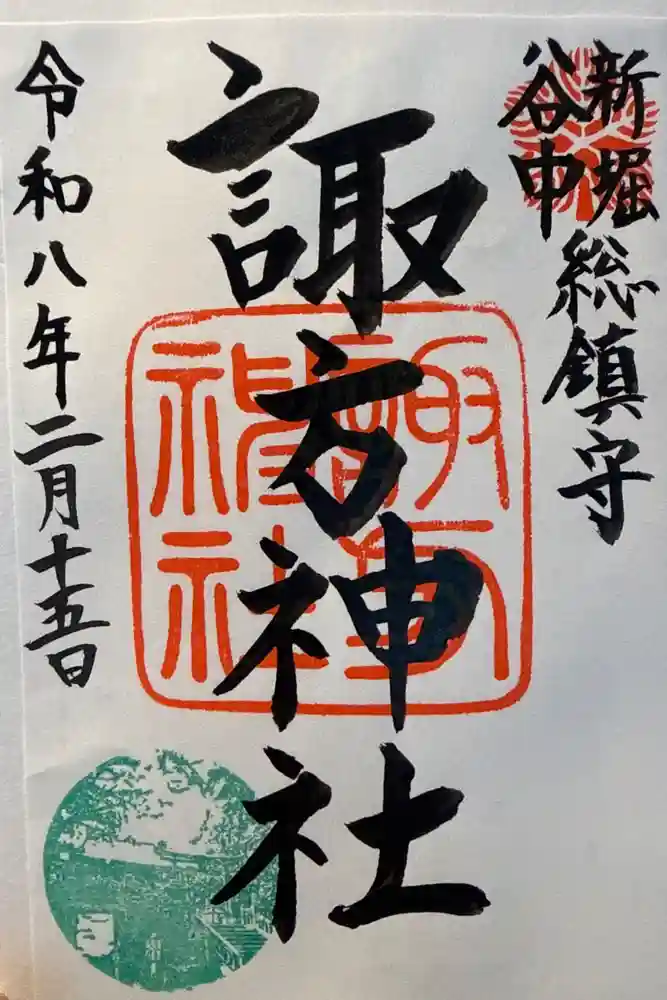 新堀
谷中
総鎮守
諏方神社
諏方
神社
令和八年二月十五日